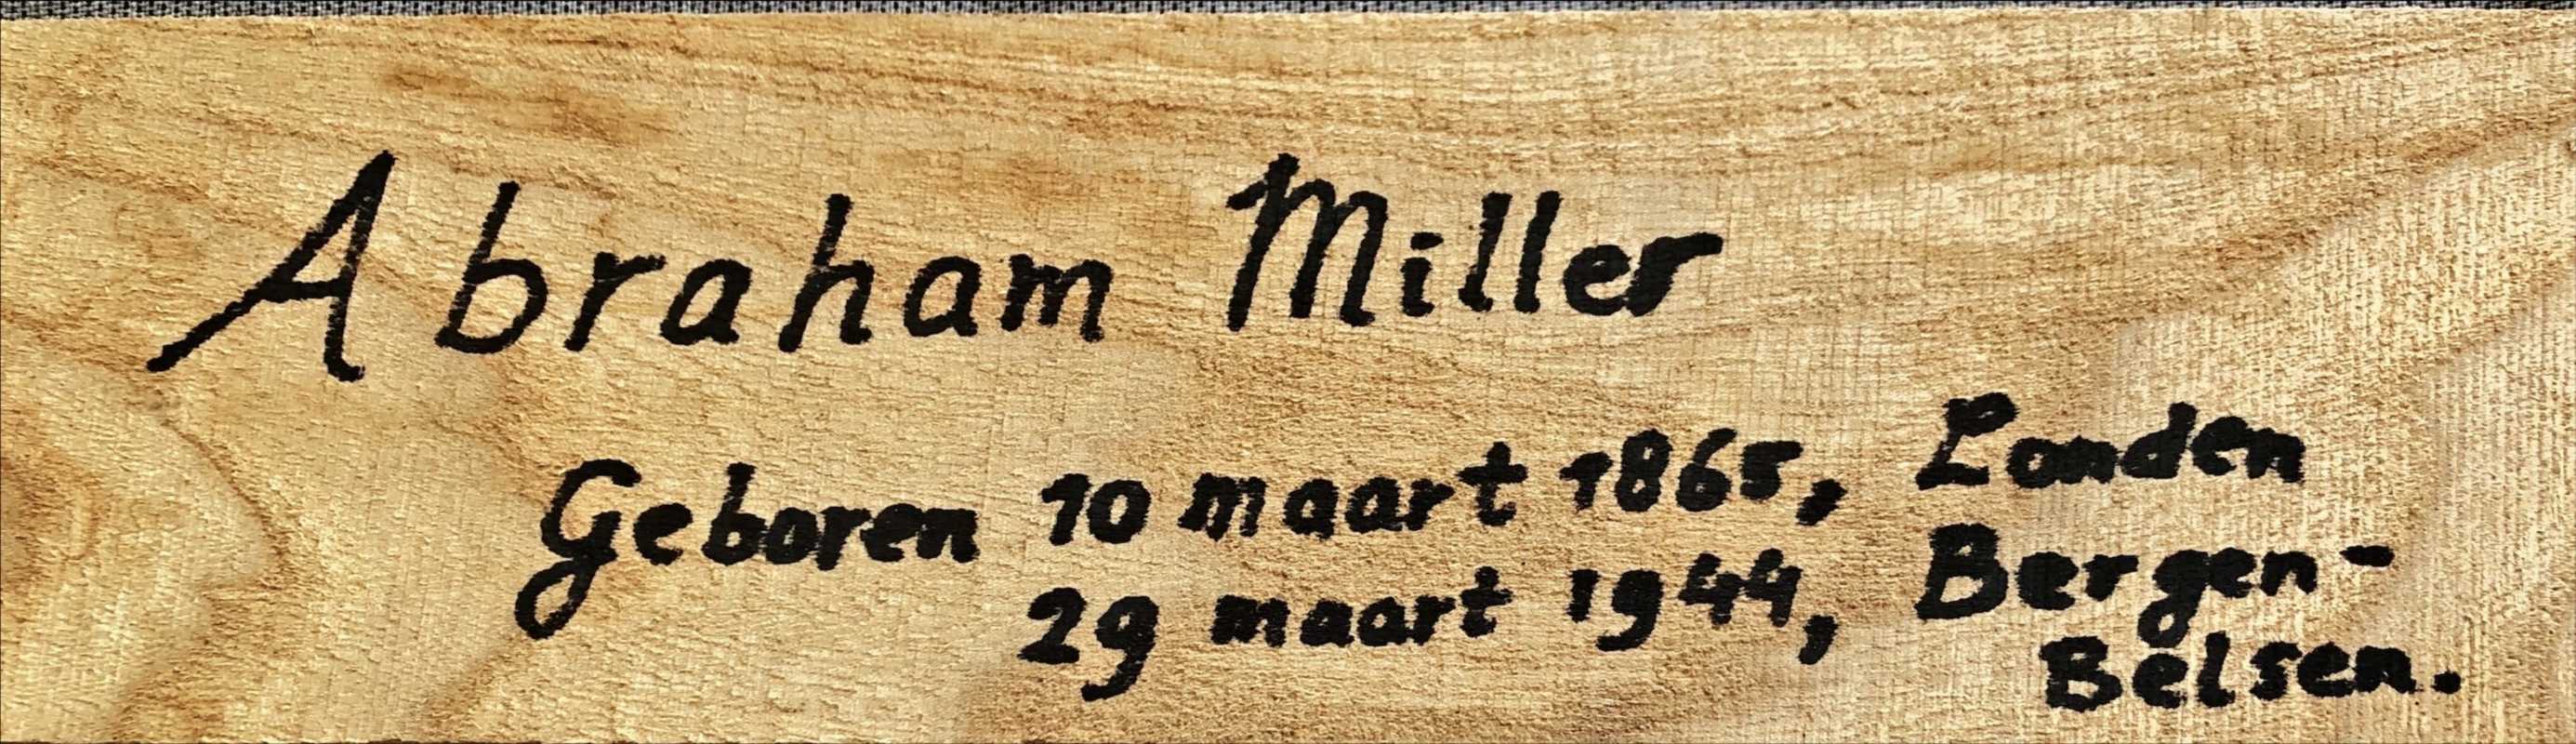 Abraham Miller
Geboren 10 maart 1865, Londen
29 maart 1944, Bergen-
Belsen.